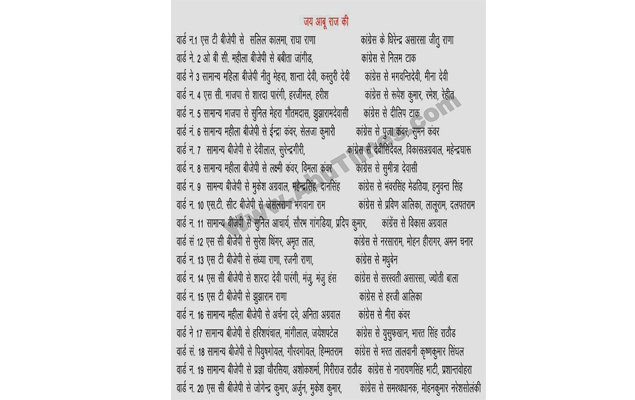 जय आबू राज की
वार्ड न.1 एस टी बीजेपी से सलिल कालमा, राघा राणा कांग्रेस के घिरेन्द्र असारसा जीतु राणा
वार्ड ने. 2 ओ बी सी. महीला बीजेपी से बबीता जांगीड, कांग्रेस से निलम टाक
वार्ड ने 3 सामान्य महिला बीजेपी नीतु मेहरा, शान्ता देवी, कस्तुरी देवी कांग्रेस से भगवन्तिदेवी, मीना देवी
वार्ड न. 4 एस सी. भाजपा से शारदा पारंगी, हरजीमल, हरीश कांग्रेस से रूपेश कुमार, रमेश, रेहीत
वार्ड न. 5 सामान्य भाजपा से सुनिल मेहरा गौतमदास, झुझारामदेवासी कांग्रेस से दीलिप टाक
वार्ड नं. 6 सामान्य महीला बीजेपी से ईन्द्रा कंवर, सेलजा कुमारी कांग्रेस से पुजा कंवर, सुमन कंवर
वार्ड नं. 7 सामान्य बीजेपी से देवीलाल, सुरेन्द्रगीरी, कांग्रेस से देवीसिदेवल, विकासअग्रवाल, महेन्द्रघारू
वार्ड न. 8 सामान्य महीला बीजेपी से लक्ष्मी कंवर, विमला कंवर कांग्रेस से सुमीत्रा देवासी
वार्ड नं. 9 सामन्य बीजेपी से मुकेश अग्रवाल, महेन्द्रसिंह, दानसिंह कांग्रेस से भंवरसिंह मेडतिया, हनुवन्त सिंह
वार्ड न. 10 एस.टी. सीट बीजेपी से जेसलराणा भगवाना राम कांग्रेस से प्रविण आलिका, लालूराम, दलपतराम
वार्ड न. 11 सामान्य बीजेपी से सुनिल आचार्य, सौरम गांगडिया, प्रदिप कुमार, कांग्रेस से विकास अग्रवाल
वार्ड सं 12 एस सी बीजेपी से सुरेश थिंगर, अमृत लाल, कांग्रेस से नरसाराम, मोहन हीरागर, अमन चनार
वार्ड न. 13 एस टी बीजेपी से संध्या राणा, रजनी राणा, कांग्रेस से मधुबेन
वार्ड न. 14 एस सी बीजेपी से शारदा देवी पारंगी, मंजु, मंजु हंस कांग्रेस से सरस्वती असारसा, ज्योती बाला
वार्ड न. 15 एस टी बीजेपी से झुझाराम राणा कांग्रेस से हरजी आलिका
वार्ड न. 16 सामान्य महीला बीजेपी से अर्चना दवे, अनिता अग्रवाल कांग्रेस से नीरा कंवर
वार्ड ने 17 सामान्य बीजेपी से हरिशपंचाल, मांगीलाल, जयेशपटेल कांग्रेस से युसुफखान, भारत सिंह राठौड
वार्ड सं. 18 सामान्य बीजेपी से पियुषगोयल, गौरवगोयल, हिम्मतराम कांग्रेस से भरत लालवानी कृष्णकुमार सिंघल
वार्ड न. 19 सामान्य बीजेपी से प्रज्ञा चौरसिया, अशोकशर्मा, गिरीराज राठौड कांग्रेस से नारायणसिंह भाटी, प्रशान्तवोहरा
वार्ड न. 20 एस सी बीजेपी से जोगेन्द्र कुमार, अर्जुन, मुकेश कुमार, कांग्रेस से समरथधानक, मोहनकुमार नरेशसोलंकी
www.AbuTimes.com